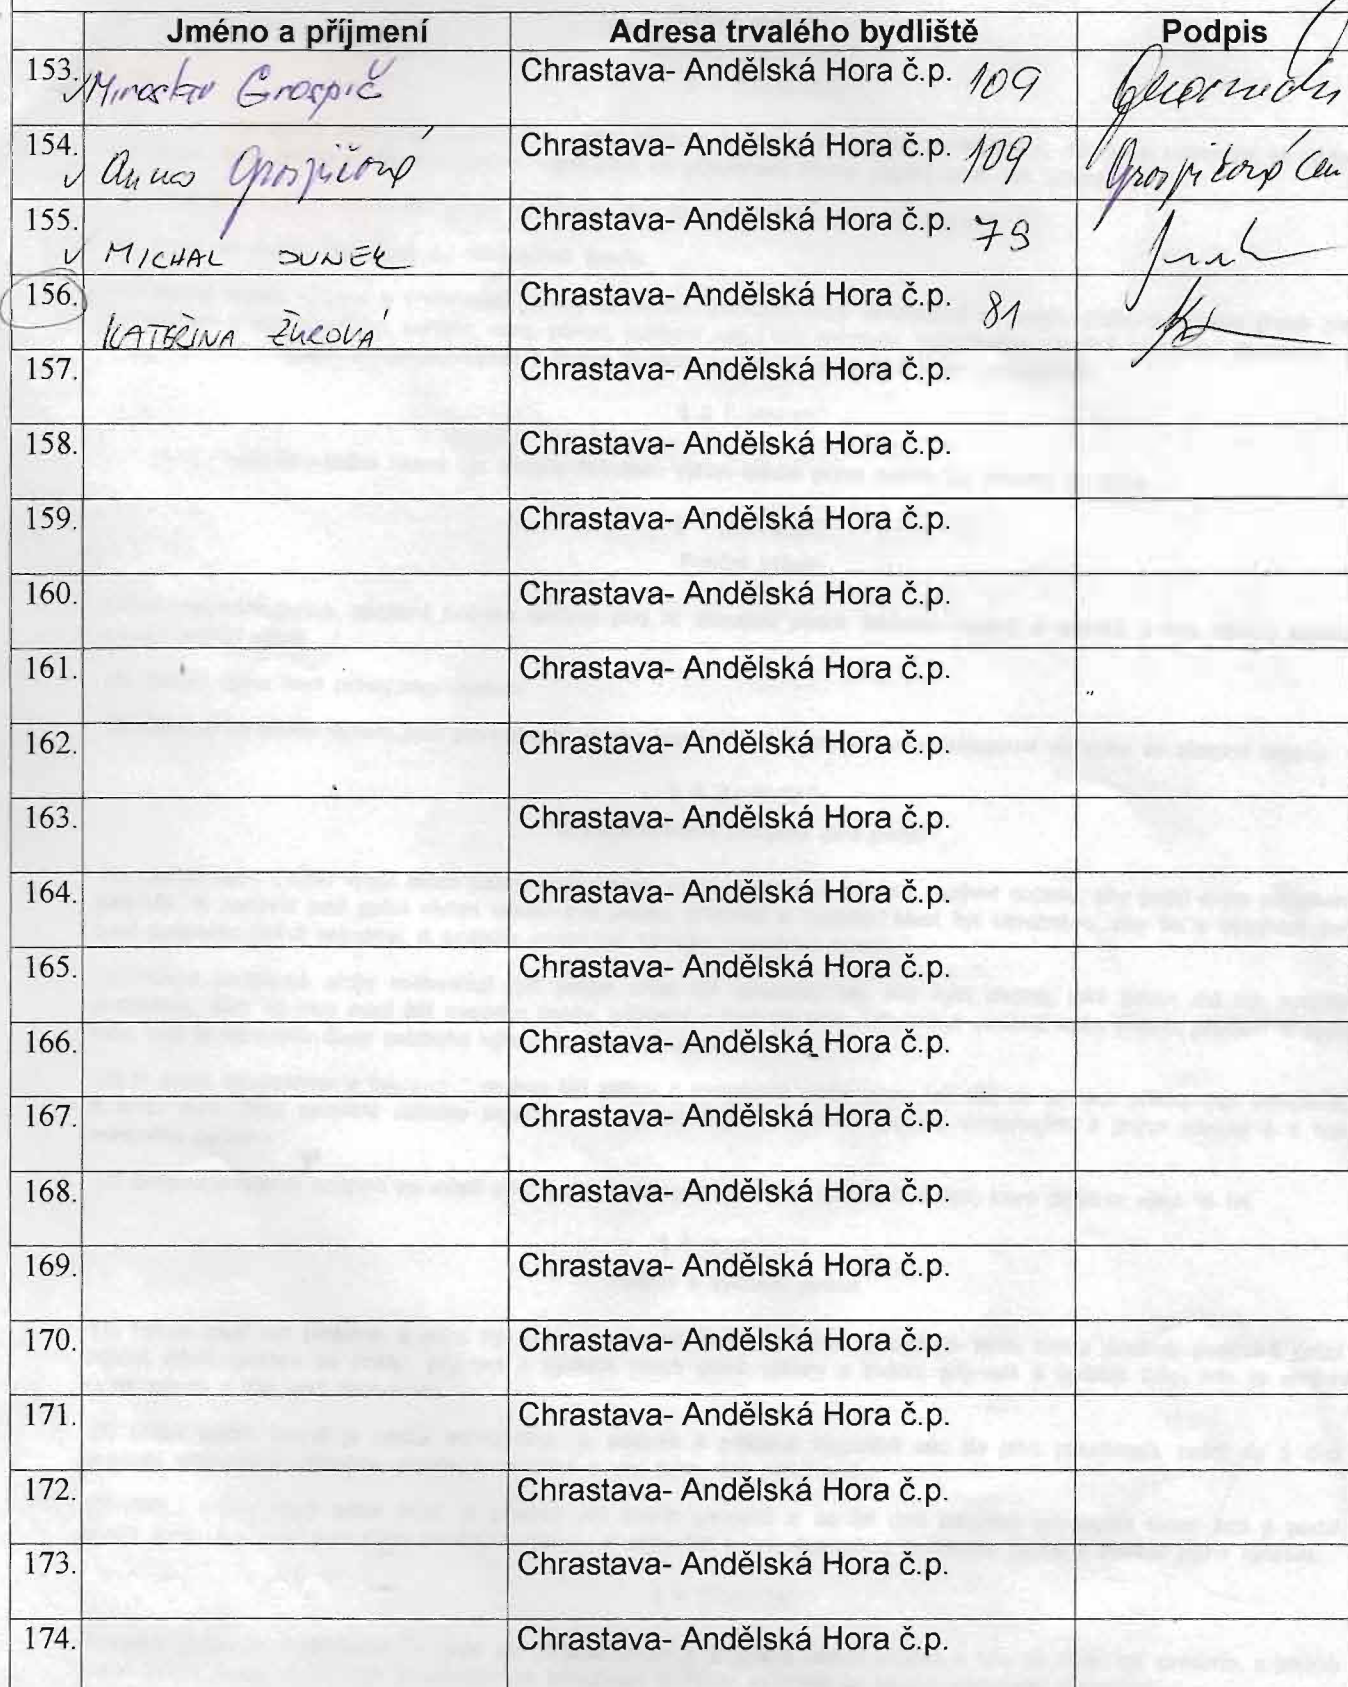 Jméno a příjmení Adresa trvalého bydliště Podpis
153. Miroslav Grospič Chrastava- Andělská Hora č.p. 109
154. Anna Grospičová Chrastava- Andělská Hora č.p. 109 Grospičová
155. MICHAL Chrastava- Andělská Hora č.p. 79
156. KATEŘINA Chrastava- Andělská Hora č.p. 81
157. Chrastava- Andělská Hora č.p.
158. Chrastava- Andělská Hora č.p.
159. Chrastava- Andělská Hora č.p.
160. Chrastava- Andělská Hora č.p.
161. Chrastava- Andělská Hora č.p.
162. Chrastava- Andělská Hora č.p.
163. Chrastava- Andělská Hora č.p.
164. Chrastava- Andělská Hora č.p.
165. Chrastava- Andělská Hora č.p.
166. Chrastava- Andělská Hora č.p.
167. Chrastava- Andělská Hora č.p.
168. Chrastava- Andělská Hora č.p.
169. Chrastava- Andělská Hora č.p.
170. Chrastava- Andělská Hora č.p.
171. Chrastava- Andělská Hora č.p.
172. Chrastava- Andělská Hora č.p.
173. Chrastava- Andělská Hora č.p.
174. Chrastava- Andělská Hora č.p.